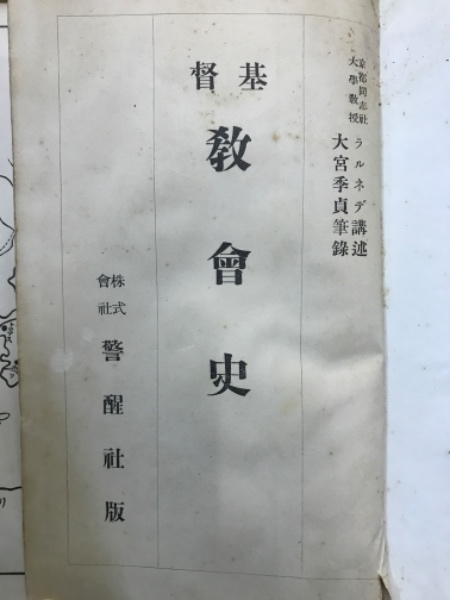 京都同志社
大學教授
ラルネデ講述
大宮季貞筆錄
基督
教會史
株式
會社
警醒社版